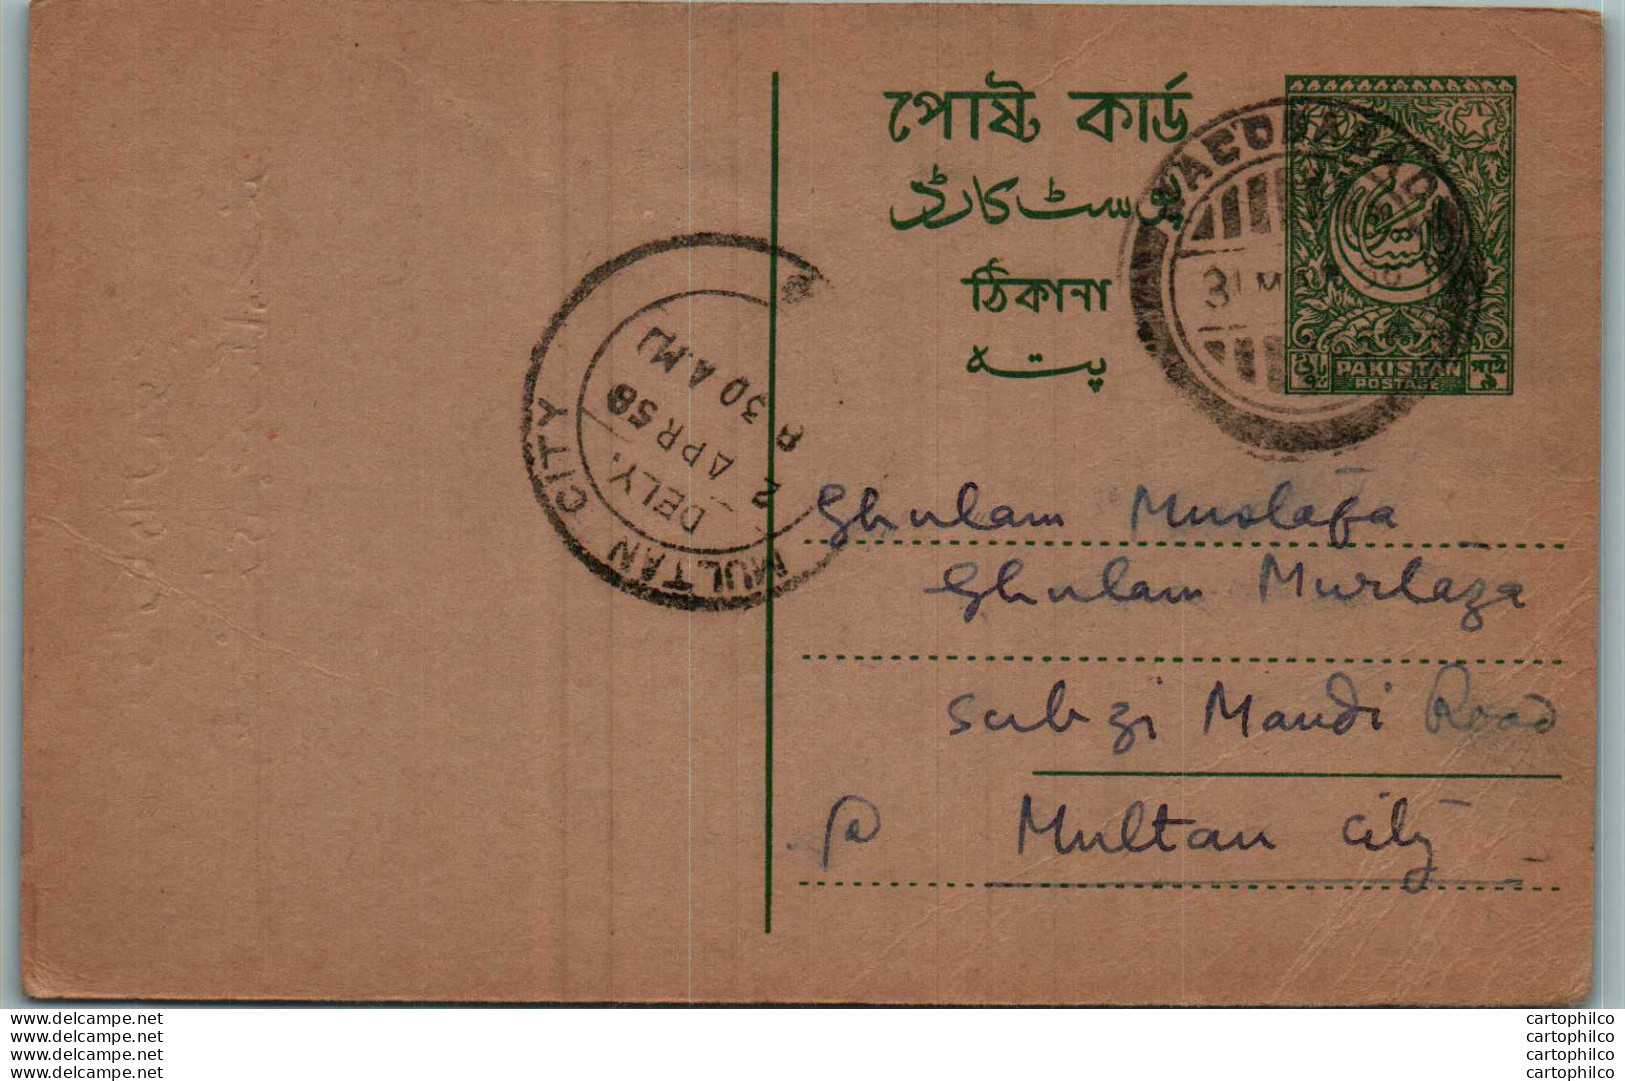 পোষ্ট কার্ড
پوسٹ کارڈ
ঠিকানা
پتہ
PAKISTAN
POSTAGE
পাই
৯
31 M
MULTAN CITY
DELY.
2 APR 58
8 30 A.M
Ghulam Mustafa
Ghulam Murtaza
Sabzi Mandi Road
Multan City
www.delcampe.net
www.delcampe.net
www.delcampe.net
www.delcampe.net
cartophilco
cartophilco
cartophilco
cartophilco